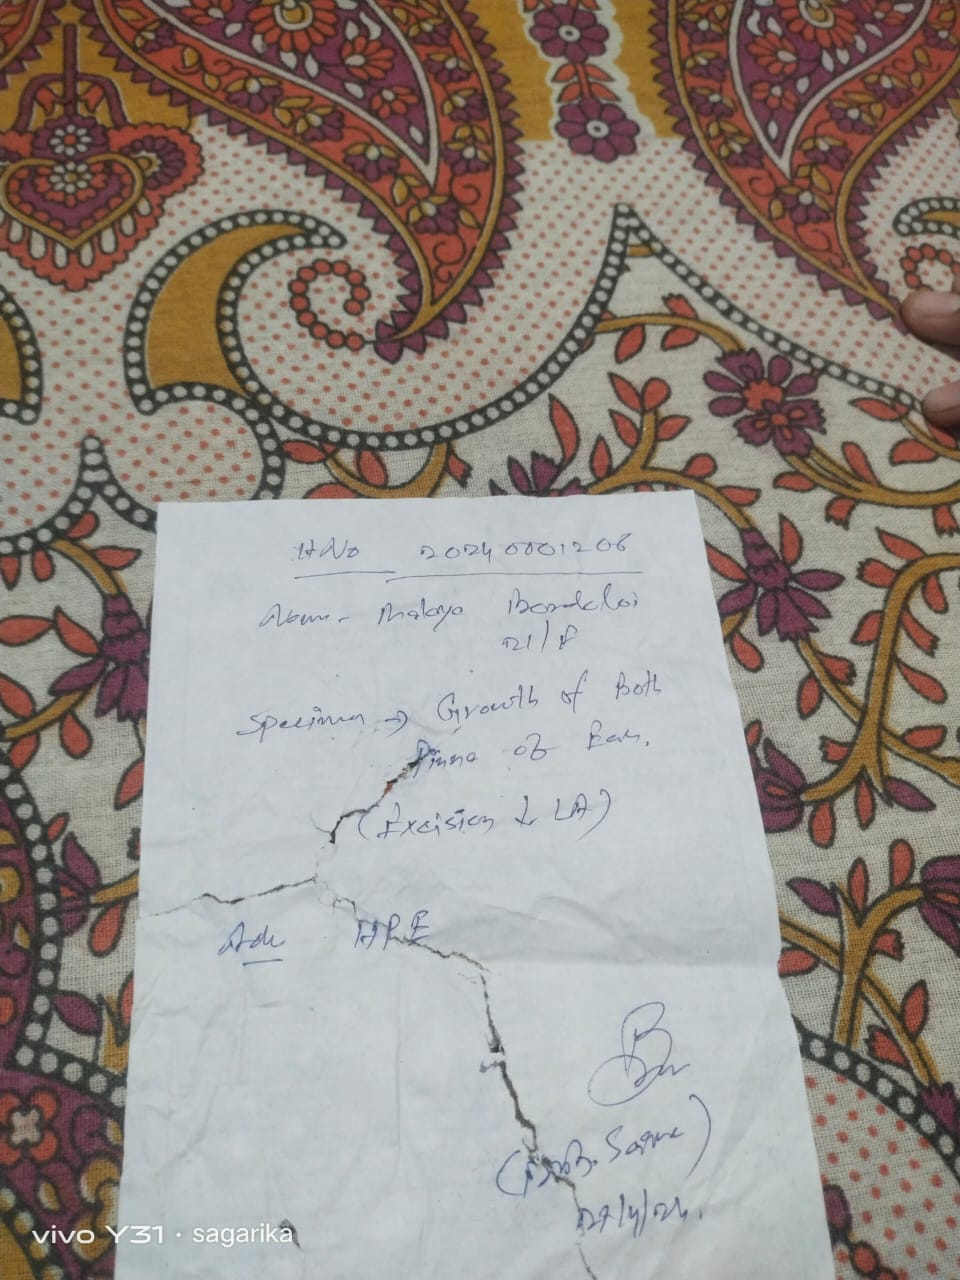 H No 20240001208
Bordoloi
21/F
Specimen → Growth of Both
Pinna of Ear.
(Excision & LA)
Adv HPE
27/4/24.
vivo Y31 · sagarika